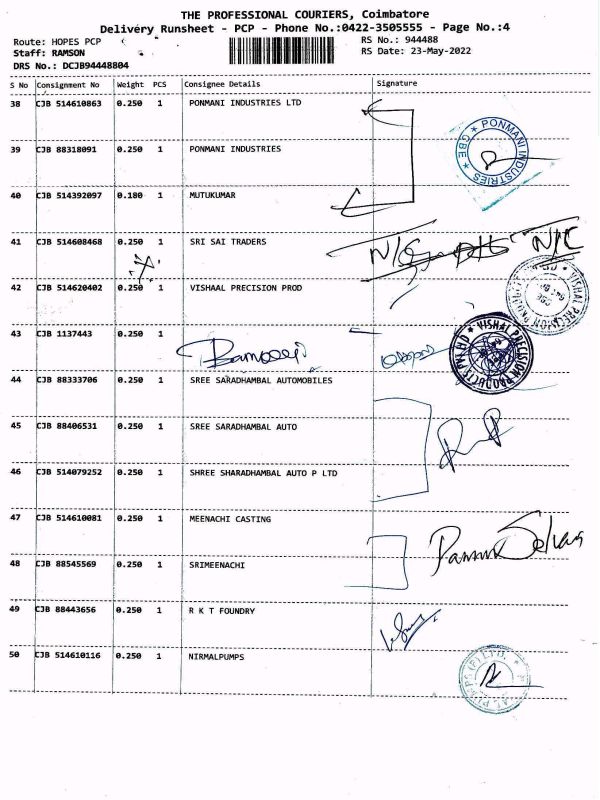 THE PROFESSIONAL COURIERS, Coimbatore
Delivery Runsheet - PCP - Phone No.:0422-3505555 - Page No.:4
Route: HOPES PCP RS No.: 944488
Staff: RAMSON RS Date: 23-May-2022
DRS No.: DCJB94448804
S No Consignment No Weight PCS Consignee Details Signature
38 CJB 514610863 0.250 1 PONMANI INDUSTRIES LTD
PONMANI INDUSTRIES * CBE *
39 CJB 88318091 0.250 1 PONMANI INDUSTRIES
40 CJB 514392097 0.180 1 MUTUKUMAR
41 CJB 514608468 0.250 1 SRI SAI TRADERS N/C
42 CJB 514620402 0.250 1 VISHAAL PRECISION PROD
43 CJB 1137443 0.250 1
VISHAL PRECISION PRODUCTS PVT LTD
44 CJB 88333706 0.250 1 SREE SARADHAMBAL AUTOMOBILES
45 CJB 88406531 0.250 1 SREE SARADHAMBAL AUTO
46 CJB 514079252 0.250 1 SHREE SHARADHAMBAL AUTO P LTD
47 CJB 514610081 0.250 1 MEENACHI CASTING
48 CJB 88545569 0.250 1 SRIMEENACHI
49 CJB 88443656 0.250 1 R K T FOUNDRY
50 CJB 514610116 0.250 1 NIRMALPUMPS